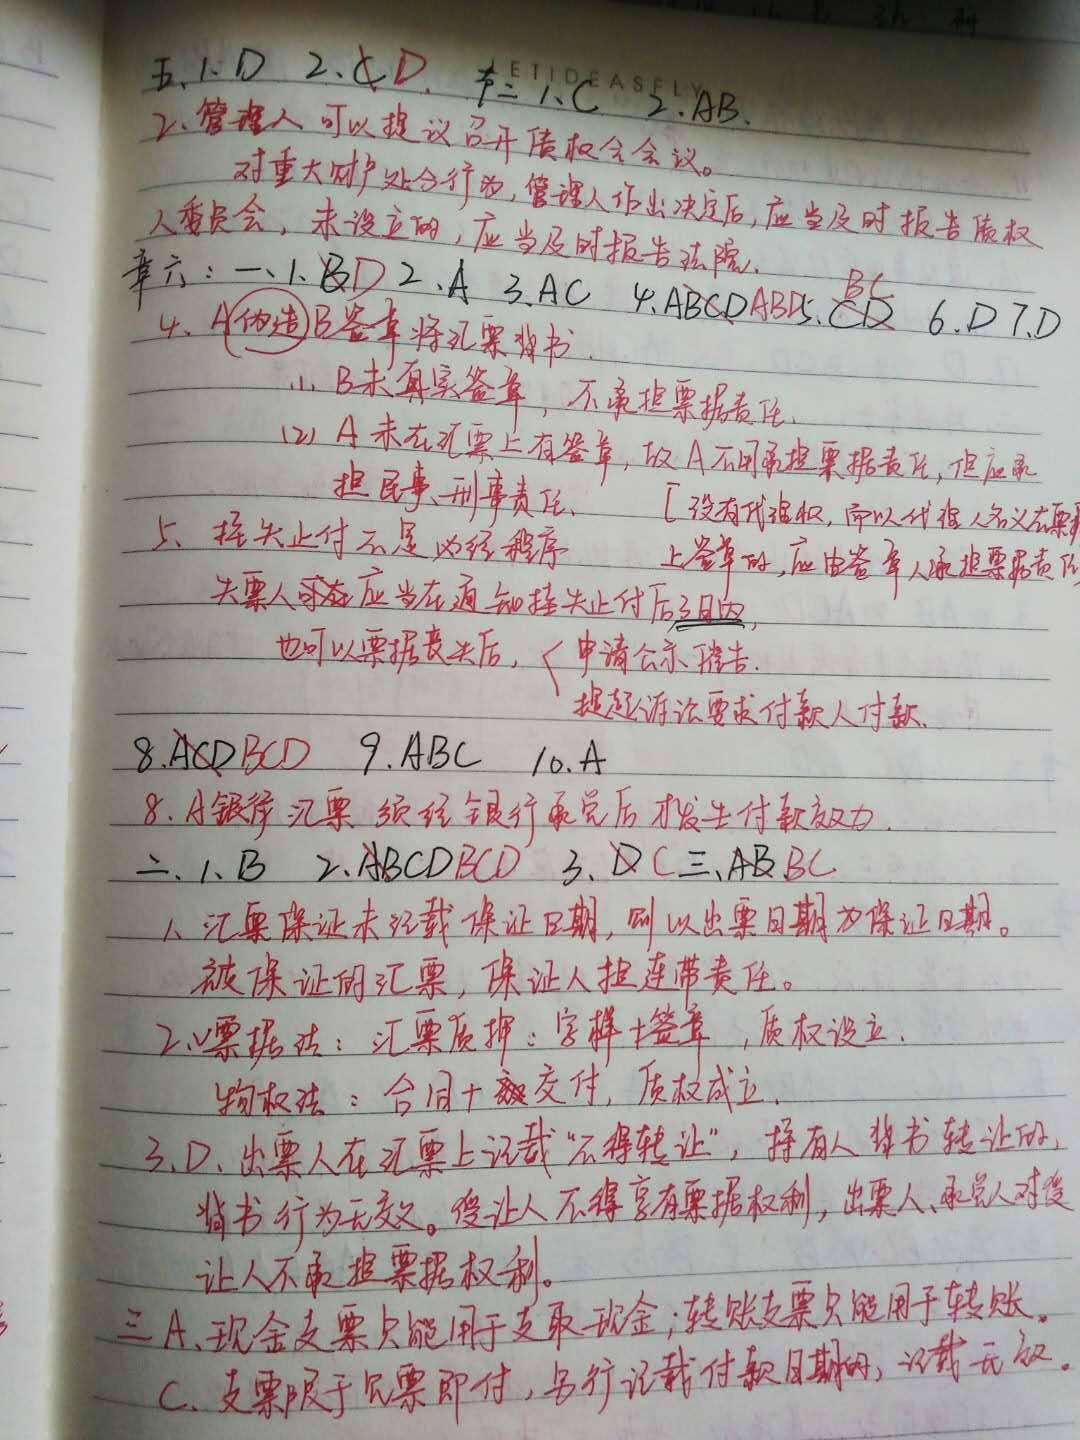 五、1、D 2、C D. 十二 1、C 2、AB.
ETIDEASFLY
2、管理人可以提议召开债权会会议。
对重大财产处分行为,管理人作出决定后,应当及时报告债权
人委员会,未设立的,应当及时报告法院.
章六:一、1、BD 2、A 3、AC 4、ABCD ABD 5、CD BC 6、D 7、D
4、A伪造B签章将汇票背书.
(1) B未真实签章,不承担票据责任.
(2) A未在汇票上有签章,故A不用承担票据责任,但应承
担民事、刑事责任、
[没有代理权,而以代理人名义在票据
上签章的,应由签章人承担票据责任
5、挂失止付不是必经程序
失票人应当在通知挂失止付后3日内,
也可以票据丧失后,
申请公示催告.
提起诉讼要求付款人付款.
8.ACD BCD 9.ABC 10.A
8.A银行汇票须经银行承兑后才发生付款效力.
二、1、B 2、ABCD BCD 3、D C 三、AB BC
1、汇票保证未记载保证日期,则以出票日期为保证日期。
被保证的汇票,保证人担连带责任。
2、票据法:汇票质押:字样+签章,质权设立.
物权法:合同+交付,质权成立.
3、D、出票人在汇票上记载“不得转让”,持有人背书转让的,
背书行为无效。受让人不得享有票据权利,出票人、承兑人对受
让人不承担票据权利。
三A、现金支票只能用于支取现金;转账支票只能用于转账。
C、支票限于见票即付,另行记载付款日期的,记载无效。